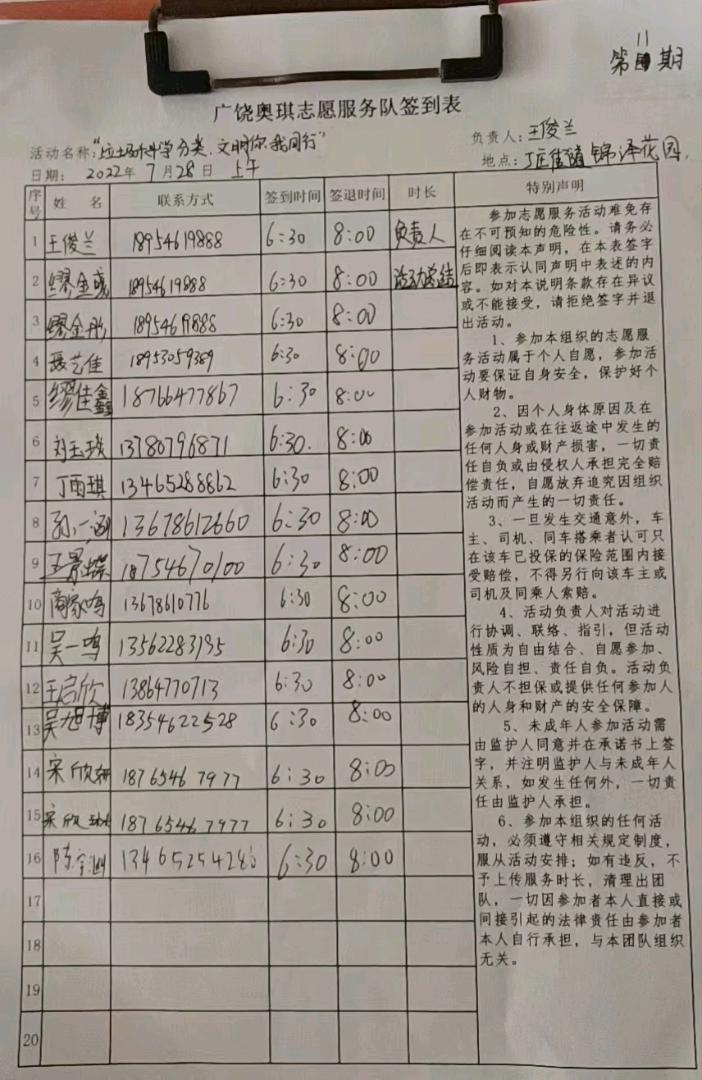 第11期
广饶奥琪志愿服务队签到表
活动名称:"垃圾科学分类,文明你我同行"
负责人:王俊兰
日期: 2022年 7月 28日 上午
地点: 锦泽花园
序号 姓 名 联系方式 签到时间 签退时间 时长 特别声明
1 王俊兰 18954619888 6:30 8:00 负责人
2 缪金彧 18954619888 6:30 8:00 活动总结
3 缪金彤 18954619888 6:30 8:00
4 聂艺佳 18953059389 6:30 8:00
5 缪佳鑫 18766477867 6:30 8:00
6 刘玉琰 13780796871 6:30. 8:00
7 丁雨琪 13465288862 6:30 8:00
8 孙一涵 13678612660 6:30 8:00
9 王景蝶 18754670100 6:30 8:00
10 商家鸣 13678610776 6:30 8:00
11 吴一鸣 13562283195 6:30 8:00
12 王启欣 13864770713 6:30 8:00
13 吴旭博 18354622528 6:30 8:00
14 宋欣 18765467977 6:30 8:00
15 宋欣 18765467977 6:30 8:00
16 陈宇 6:30 8:00
17
18
19
20
参加志愿服务活动难免存
在不可预知的危险性。请务必
仔细阅读本声明,在本表签字
后即表示认同声明中表述的内
容。如对本说明条款存在异议
或不能接受,请拒绝签字并退
出活动。
1、参加本组织的志愿服
务活动属于个人自愿,参加活
动要保证自身安全,保护好个
人财物。
2、因个人身体原因及在
参加活动或在往返途中发生的
任何人身或财产损害,一切责
任自负或由侵权人承担完全赔
偿责任,自愿放弃追究因组织
活动而产生的一切责任。
3、一旦发生交通意外,车
主、司机、同车搭乘者认可只
在该车已投保的保险范围内接
受赔偿,不得另行向该车主或
司机及同乘人索赔。
4、活动负责人对活动进
行协调、联络、指引,但活动
性质为自由结合、自愿参加、
风险自担、责任自负。活动负
责人不担保或提供任何参加人
的人身和财产的安全保障。
5、未成年人参加活动需
由监护人同意并在承诺书上签
字,并注明监护人与未成年人
关系,如发生任何外,一切责
任由监护人承担。
6、参加本组织的任何活
动,必须遵守相关规定制度,
服从活动安排;如有违反,不
予上传服务时长,清理出团
队,一切因参加者本人直接或
间接引起的法律责任由参加者
本人自行承担,与本团队组织
无关。